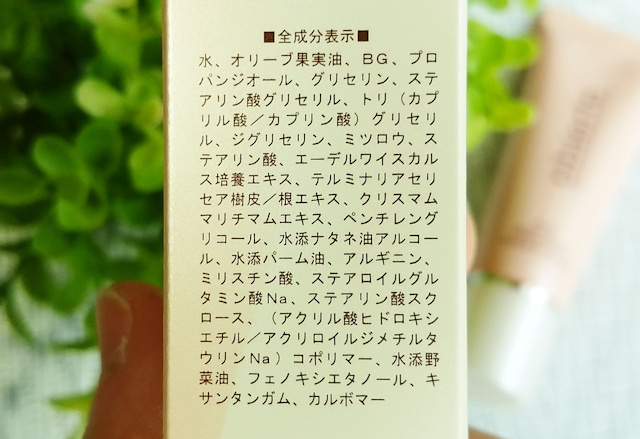 ■全成分表示■
水、オリーブ果実油、BG、プロ
パンジオール、グリセリン、ステ
アリン酸グリセリル、トリ（カプ
リル酸／カプリン酸）グリセリ
ル、ジグリセリン、ミツロウ、ス
テアリン酸、エーデルワイスカル
ス培養エキス、テルミナリアセリ
セア樹皮／根エキス、クリスマム
マリチマムエキス、ペンチレング
リコール、水添ナタネ油アルコー
ル、水添パーム油、アルギニン、
ミリスチン酸、ステアロイルグル
タミン酸Na、ステアリン酸スク
ロース、（アクリル酸ヒドロキシ
エチル／アクリロイルジメチルタ
ウリンNa）コポリマー、水添野
菜油、フェノキシエタノール、キ
サンタンガム、カルボマー